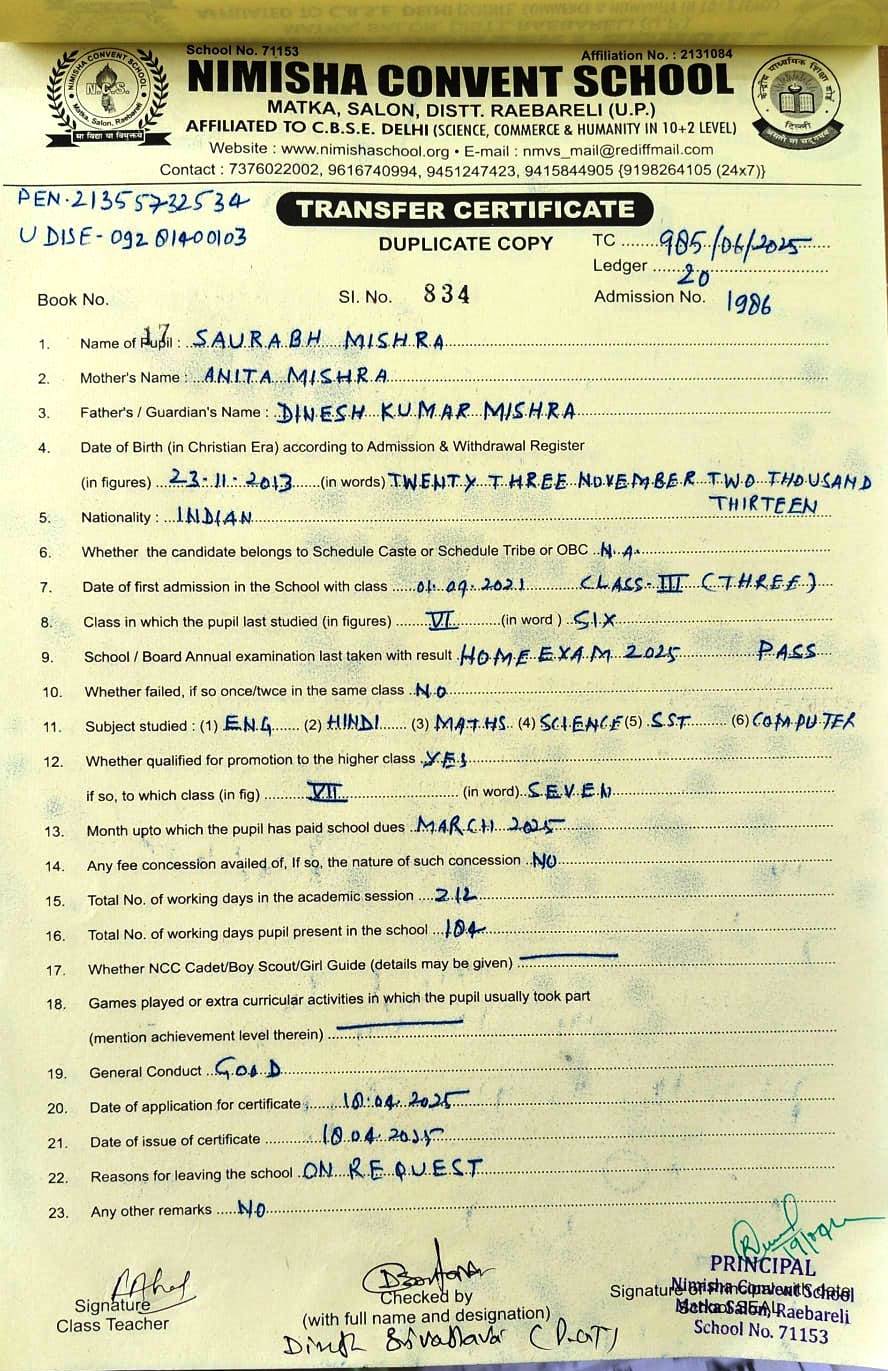 School No. 71153
Affiliation No. : 2131084
NIMISHA CONVENT SCHOOL
NIMISHA CONVENT SCHOOL
N.C.S.
Matka, Salon, Raebareli
सा विद्या या विमुक्तये
केन्द्रीय माध्यमिक शिक्षा बोर्ड
दिल्ली
असतो मा सद्गमय
MATKA, SALON, DISTT. RAEBARELI (U.P.)
AFFILIATED TO C.B.S.E. DELHI (SCIENCE, COMMERCE & HUMANITY IN 10+2 LEVEL)
Website : www.nimishaschool.org • E-mail : nmvs_mail@rediffmail.com
Contact : 7376022002, 9616740994, 9451247423, 9415844905 {9198264105 (24x7)}
PEN-21355732534
TRANSFER CERTIFICATE
U DISE - 09281400103
DUPLICATE COPY
TC 985/06/2025
Ledger 20
Book No.
17
Sl. No. 834
Admission No. 1986
1. Name of Pupil : SAURABH MISHRA
2. Mother's Name : ANITA MISHRA
3. Father's / Guardian's Name : DINESH KUMAR MISHRA
4. Date of Birth (in Christian Era) according to Admission & Withdrawal Register
(in figures) 23-11-2013 (in words) TWENTY THREE NOVEMBER TWO THOUSAND
THIRTEEN
5. Nationality : INDIAN
6. Whether the candidate belongs to Schedule Caste or Schedule Tribe or OBC N.A.
7. Date of first admission in the School with class 01.09.2021 CLASS-III (THREE)
8. Class in which the pupil last studied (in figures) VI (in word ) SIX
9. School / Board Annual examination last taken with result HOME EXAM 2025 PASS
10. Whether failed, if so once/twce in the same class NO
11. Subject studied : (1) ENG (2) HINDI (3) MATHS (4) SCIENCE (5) SST (6) COMPUTER
12. Whether qualified for promotion to the higher class YES
if so, to which class (in fig) VII (in word) SEVEN
13. Month upto which the pupil has paid school dues MARCH 2025
14. Any fee concession availed of, If so, the nature of such concession NO
15. Total No. of working days in the academic session 212
16. Total No. of working days pupil present in the school 184
17. Whether NCC Cadet/Boy Scout/Girl Guide (details may be given)
18. Games played or extra curricular activities in which the pupil usually took part
(mention achievement level therein)
19. General Conduct GOOD
20. Date of application for certificate 18.04.2025
21. Date of issue of certificate 18.04.2025
22. Reasons for leaving the school ON REQUEST
23. Any other remarks NO
PRINCIPAL
Nimisha Convent School
Matka Salon, Raebareli
School No. 71153
Signature of Principal with date
School SEAL
Signature
Class Teacher
Checked by
(with full name and designation)